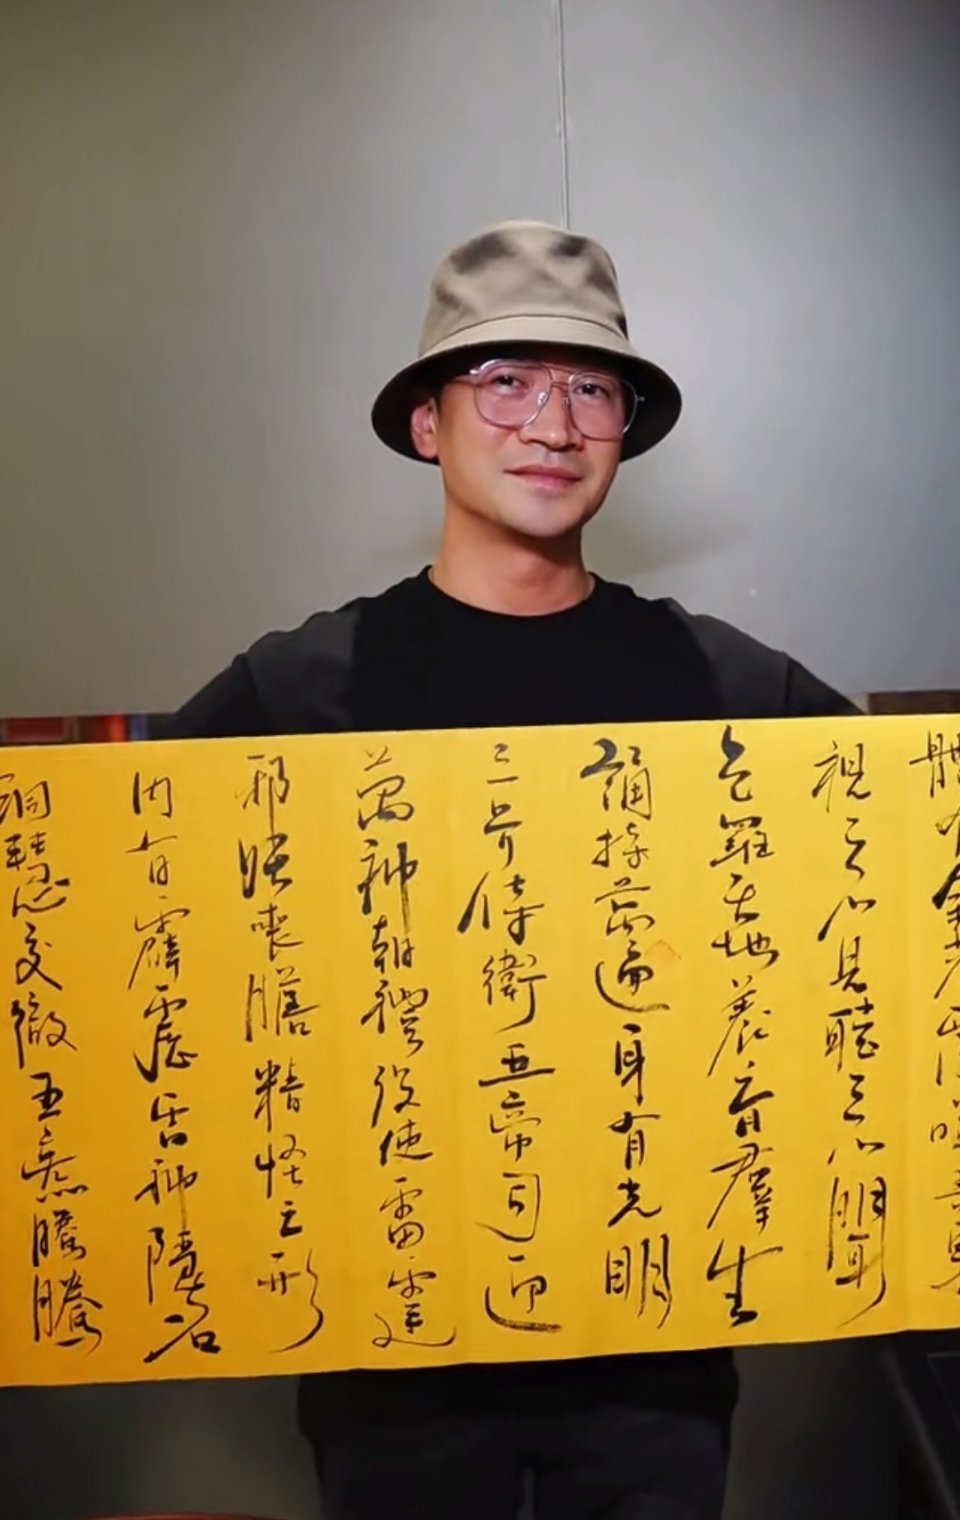 體有金光覆映
視之不見聽之不聞
包羅天地養育群生
誦持萬遍身有光明
三界侍衛五帝司迎
萬神朝禮役使雷霆
鬼妖喪膽精怪亡形
內有霹靂雷神隱名
洞慧交徹五炁騰騰